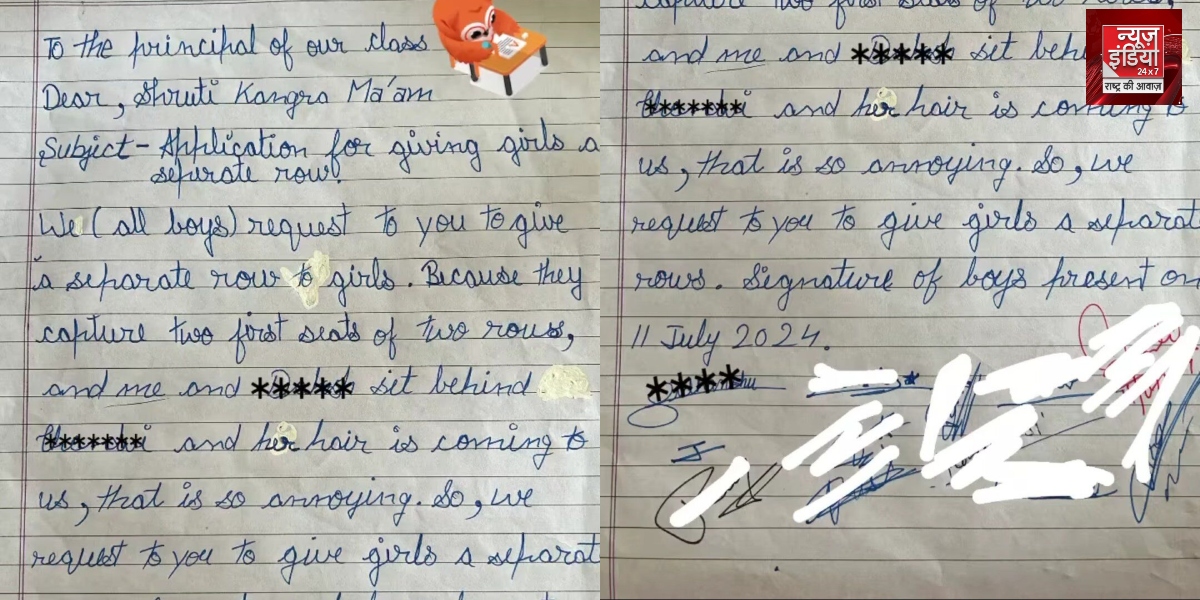 To the principal of our class
Dear, Shruti Kangra Ma'am
Subject - Application for giving girls a
seperate row!
We (all boys) request to you to give
a separate row to girls. Because they
capture two first seats of two rows,
and me and ***** sit behind
******* and her hair is coming to
us, that is so annoying. So, we
request to you to give girls a separat
capture two first seats of two rows,
and me and ***** sit behi
******* and her hair is coming to
us, that is so annoying. So, we
request to you to give girls a separat
rows. Signature of boys present on
11 July 2024.
****
न्यूज़
इंडिया
24x7
राष्ट्र की आवाज़